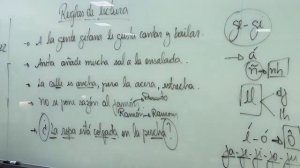 Reglas de lectura
- A la gente gitana le gusta cantar y bailar.
- Anita añade mucha sal a la ensalada.
- La calle es ancha, pero la acera, estrecha.
- No se pone razón al
Ramón → Ramón
- ¿La ropa está colgada en la percha?
ge - gi
á
ñ → nh
ll
lh
í - ó
ja - je - ji - jo -